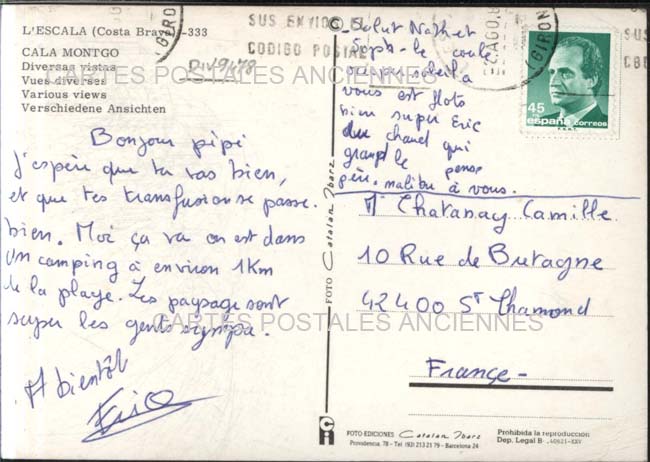 L'ESCALA (Costa Brava) -333
CALA MONTGO
Diversas vistas
Vues diverses
Various views
Verschiedene Ansichten
Bonjour pépé
J'espère que tu vas bien,
et que tes transfusion se passe
bien. Moi ça va on est dans
un camping à environ 1Km
de la plage. Les paysage sont
super les gents sympa.
A bientôt
Eric
SUS ENVIOS
CODIGO POSTAL
Salut Nath et
Soph - le
soleil a
vous est
bien super Eric
du qui
grand le pense
père. malibu à vous.
FOTO Catalan Ibarz
GIRONA
45
españa correos
F.N.M.T.
SUS
Mr Chatanay Camille
10 Rue de Bretagne
42400 St Chamond
France
CARTES POSTALES ANCIENNES
CARTES POSTALES ANCIENNES
FOTO EDICIONES Catalan Ibarz
Providencia, 78 - Tel. (93) 213 21 79 - Barcelona 24
Prohibida la reproducción
Dep. Legal B. 40621-XXV